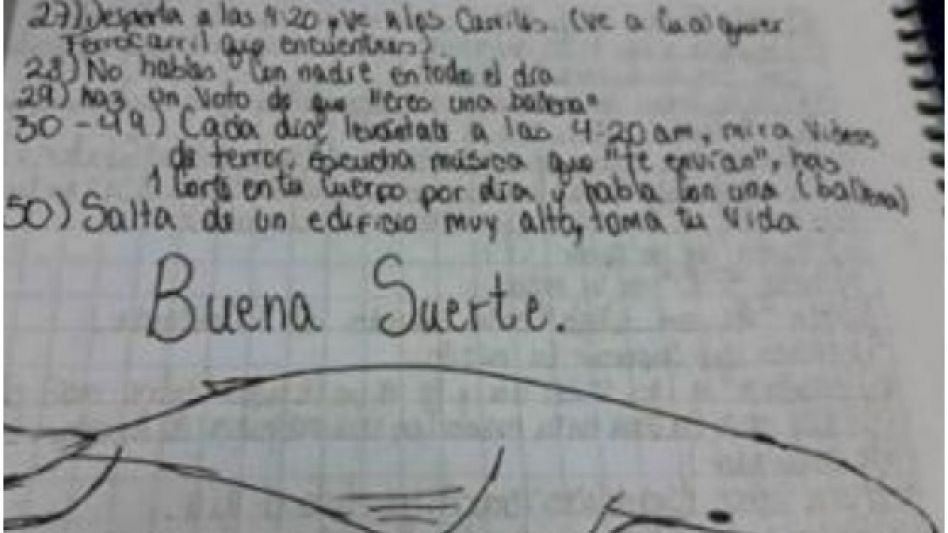 27) Despierta a las 4:20, ve a los Carriles. (ve a Cualquier
Ferrocarril que encuentres)
28) No hables Con nadie en todo el dia
29) haz un Voto de que "eres una ballena"
30-49) Cada dia, levántate a las 4:20am, mira Videos
de terror, escucha música que "te envían", has
1 Corte en tu Cuerpo por dia y habla Con una (ballena)
50) Salta de un edificio muy alto, toma tu Vida.
Buena Suerte.